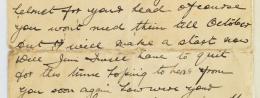 helmet for your head of course
you wont need them till October
but I will make a start now
Well Jim I will have to quit
for this time hoping to hear from
you soon again how were your